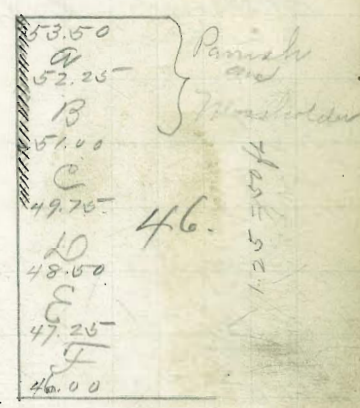 53.50
a
52.25
B
51.00
C
49.75
D
48.50
E
47.25
F
46.00
Parrish
and
Mossholder
46.
1.25 = 50 ft